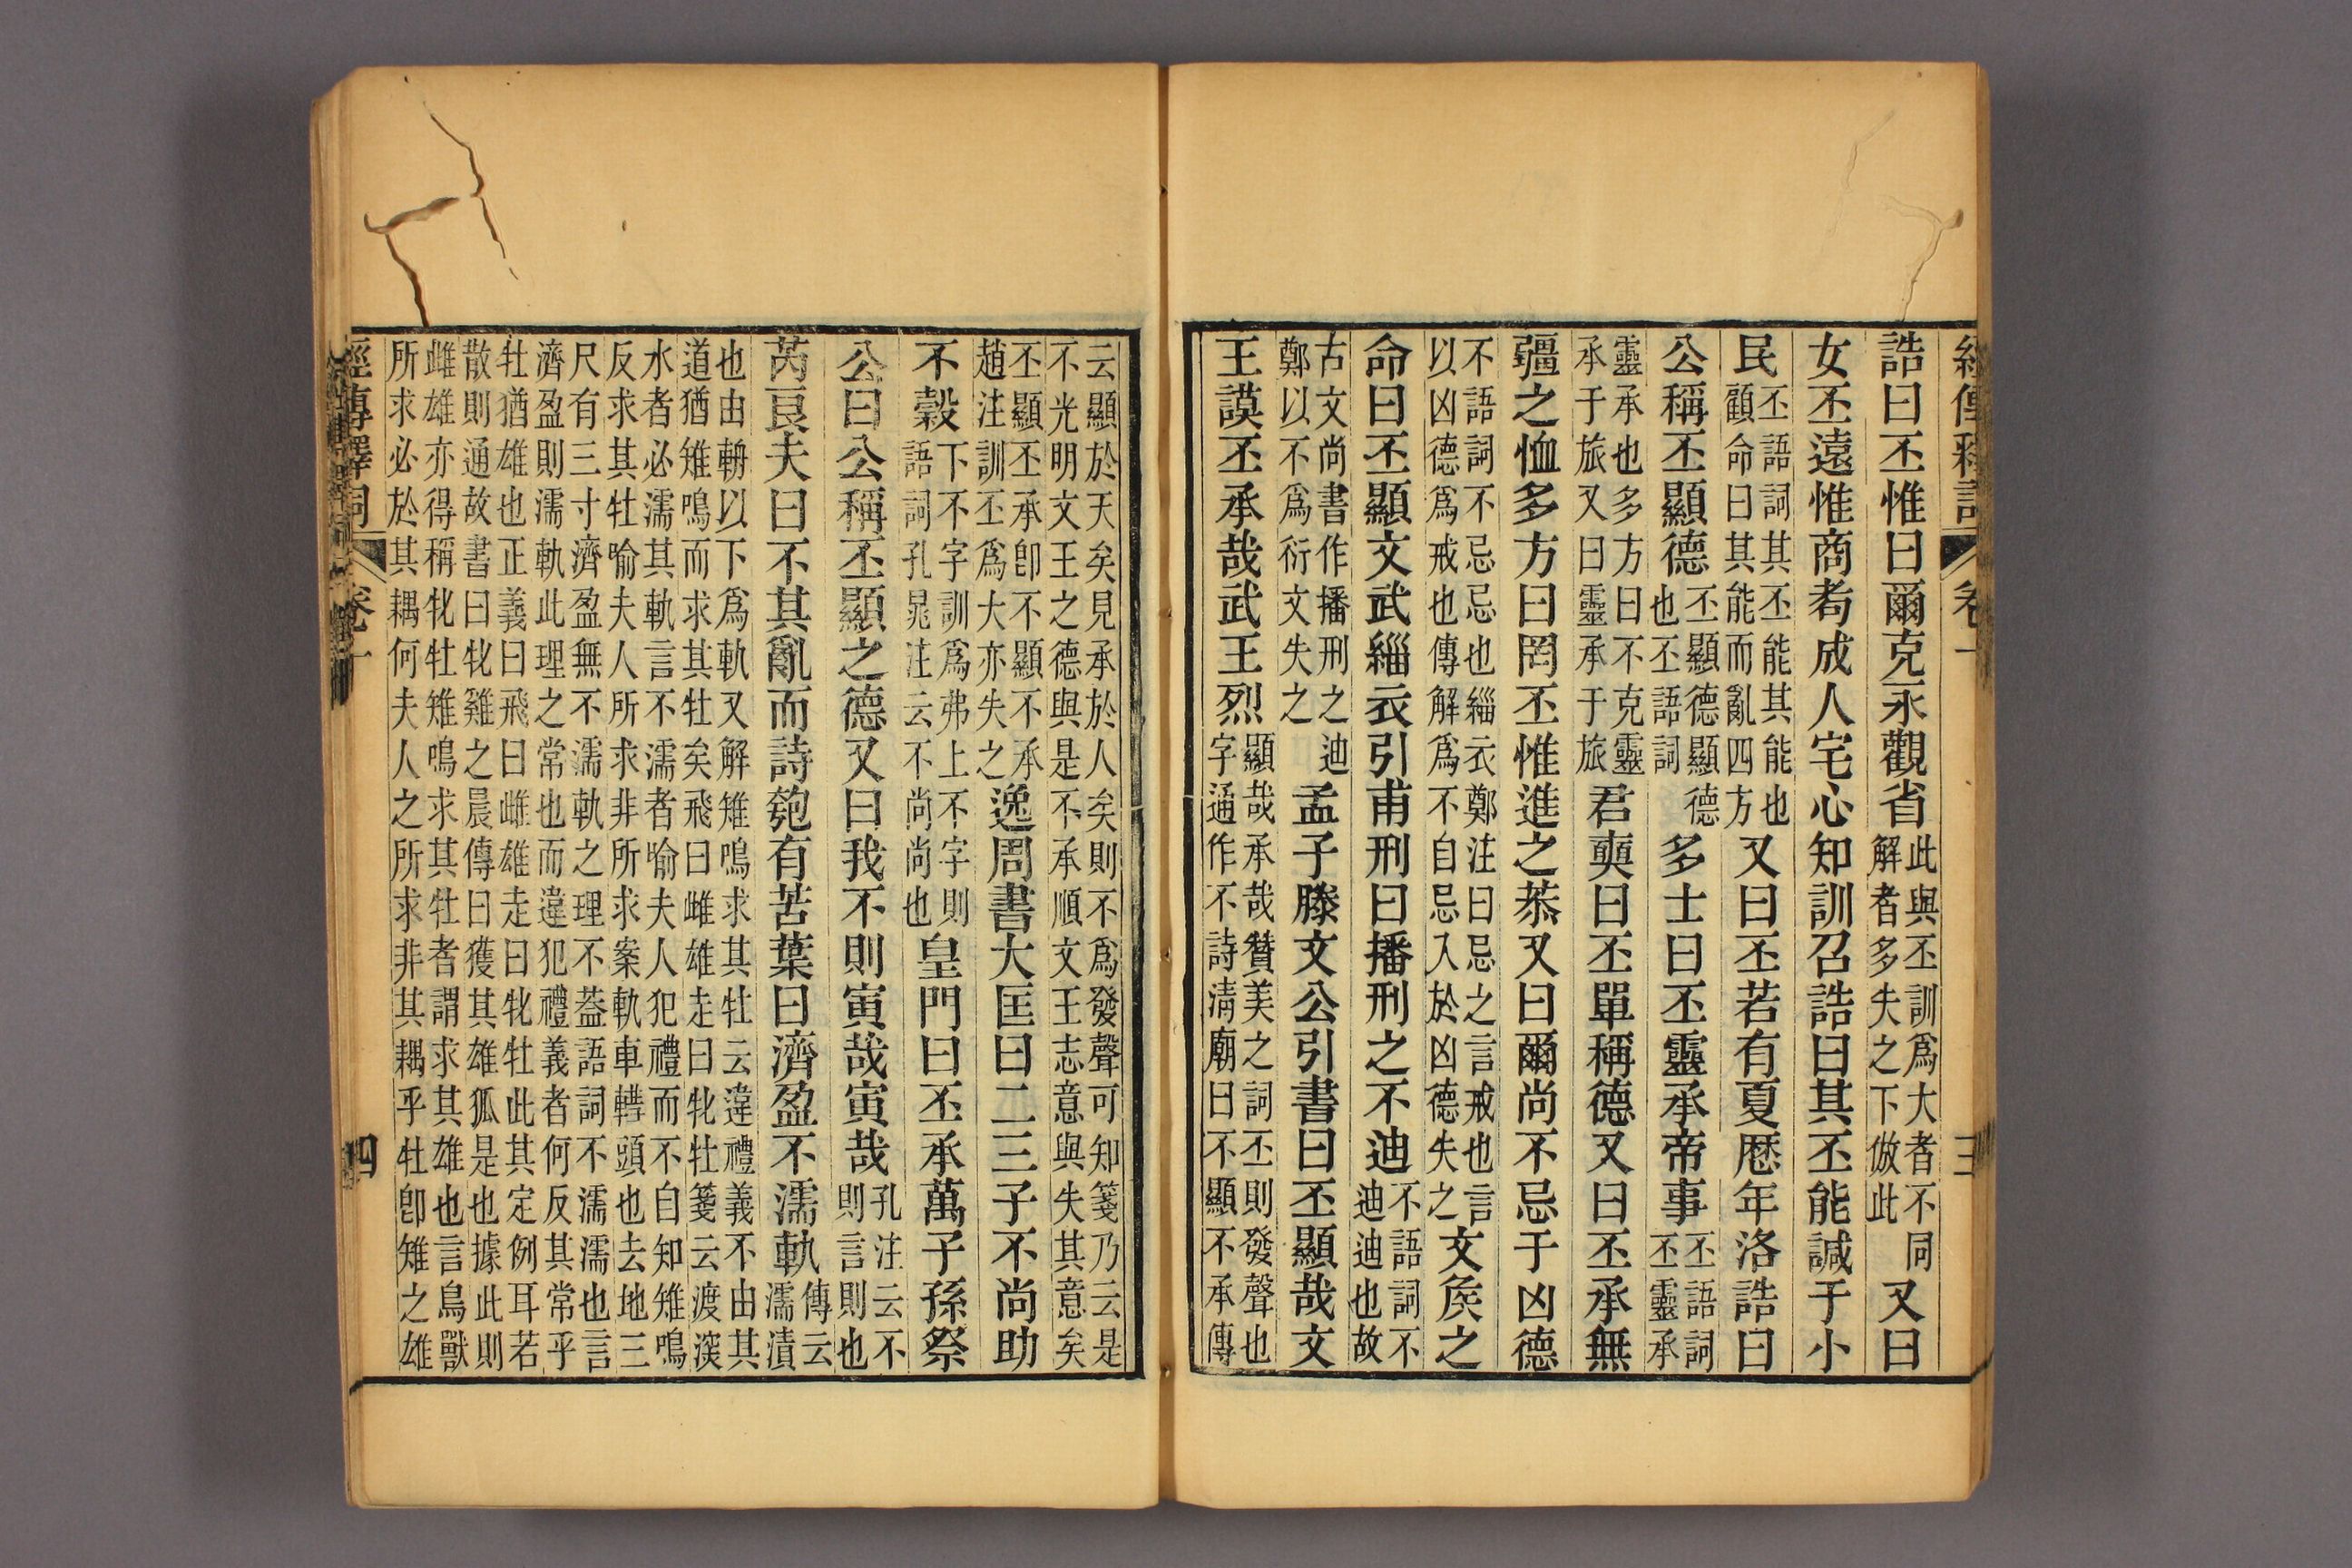 經傳釋詞 卷一 三
誥曰丕惟曰爾克永觀省此與丕訓爲大者不同解者多失之下倣此又曰
女丕遠惟商耇成人宅心知訓召誥曰其丕能諴于小
民丕語詞其丕能其能也顧命曰其能而亂四方又曰丕若有夏歷年洛誥曰
公稱丕顯德丕顯德顯德也丕語詞多士曰丕靈承帝事丕語詞丕靈承
靈承也多方曰不克靈承于旅又曰靈承于旅君奭曰丕單稱德又曰丕承無
疆之恤多方曰罔丕惟進之恭又曰爾尚不忌于凶德
不語詞不忌忌也緇衣鄭注曰忌之言戒也言以凶德爲戒也傳解爲不自忌入於凶德失之文矦之
命曰丕顯文武緇衣引甫刑曰播刑之不迪不語詞不迪迪也故
古文尚書作播刑之迪鄭以不爲衍文失之孟子滕文公引書曰丕顯哉文
王謨丕承哉武王烈顯哉承哉贊美之詞丕則發聲也字通作不詩淸廟曰不顯不承傳
云顯於天矣見承於人矣則不爲發聲可知箋乃云是
不光明文王之德與是不承順文王志意與失其意矣
丕顯丕承卽不顯不承趙注訓丕爲大亦失之逸周書大匡曰二三子不尚助
不穀下不字訓爲弗上不字則語詞孔晁注云不尚尚也皇門曰丕承萬子孫祭
公曰公稱丕顯之德又曰我不則寅哉寅哉孔注云不則言則也
芮良夫曰不其亂而詩匏有苦葉曰濟盈不濡軌傳云濡漬
也由輈以下爲軌又解雉鳴求其牡云違禮義不由其
道猶雉鳴而求其牡矣飛曰雌雄走曰牝牡箋云渡深
水者必濡其軌言不濡者喻夫人犯禮而不自知雉鳴
反求其牡喻夫人所求非所求案軌車轊頭也去地三
尺有三寸濟盈無不濡軌之理不葢語詞不濡濡也言
濟盈則濡軌此理之常也而違犯禮義者何反其常乎
牡猶雄也正義曰飛曰雌雄走曰牝牡此其定例耳若
散則通故書曰牝雞之晨傳曰獲其雄狐是也據此則
雌雄亦得稱牝牡雉鳴求其牡者謂求其雄也言鳥獸
所求必於其耦何夫人之所求非其耦乎牡卽雉之雄
經傳釋詞 卷一 四